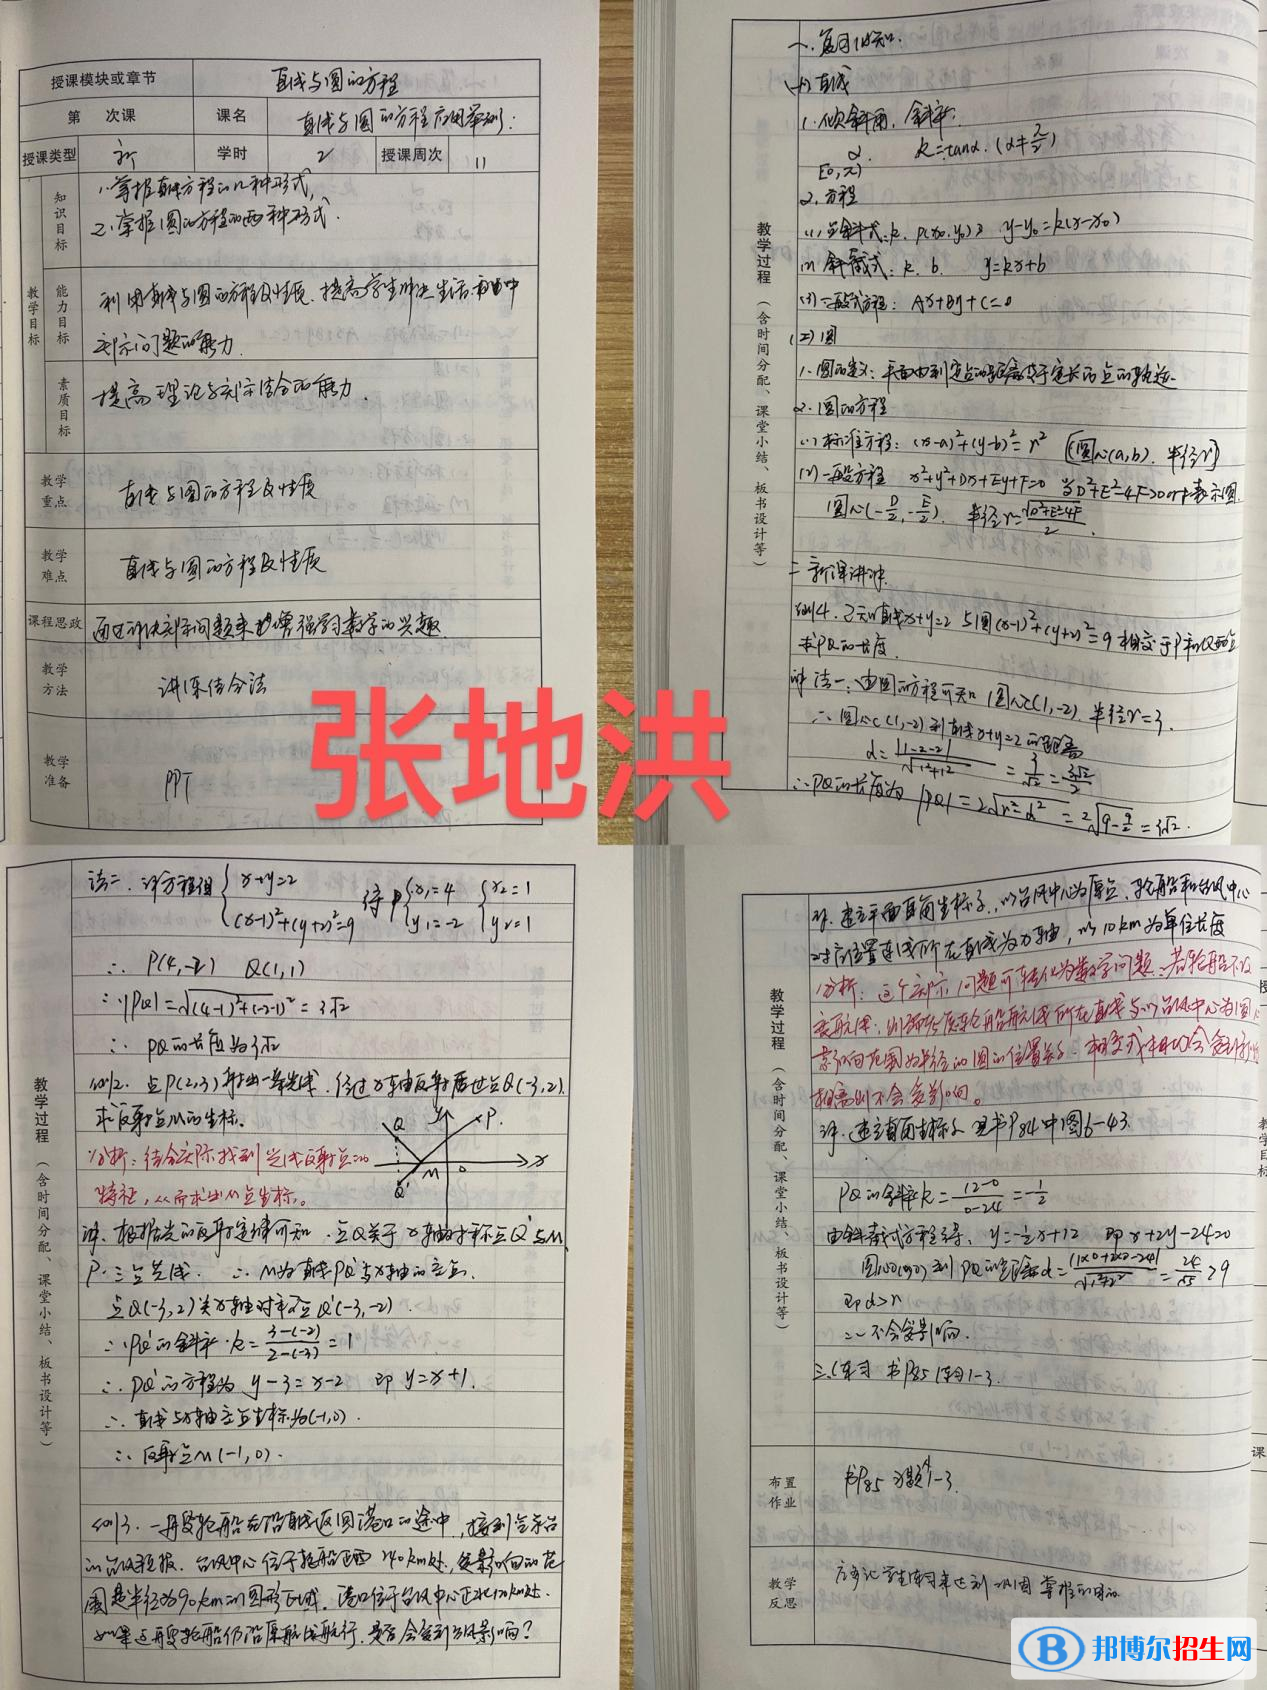 授课模块或章节 直线与圆的方程
第 次课 课名 直线与圆的方程应用举例:
授课类型 新 学时 2 授课周次 11
教学目标
知识目标
1.掌握直线方程的几种形式,
2.掌握圆的方程的两种形式.
能力目标
利用直线与圆的方程及性质.提高学生解决生活
实际问题的能力.
素质目标
提高理论与实际结合的能力.
教学重点
直线与圆的方程及性质
教学难点
直线与圆的方程及性质
课程思政
通过解决实际问题来增强学习数学的兴趣
教学方法
讲练结合法
教学准备
PPT
张地洪
教学过程(含时间分配、课堂小结、板书设计等)
一.复习旧知.
(一)直线
1.倾斜角,斜率:
α. k=tanα.(α≠π/2)
[0,π)
2.方程
(1)点斜式:k, P(x0,y0) y-y0=k(x-x0)
(2)斜截式:k, b. y=kx+b
(3)一般式方程: Ax+By+C=0
(二)圆
1.圆的定义:平面内到定点的距离等于定长的点的轨迹.
2.圆的方程
(1)标准方程:(x-a)²+(y-b)²=r² (圆心(a,b), 半径r)
(2)一般方程 x²+y²+Dx+Ey+F=0 当D²+E²-4F>0时表示圆.
圆心(-D/2,-E/2), 半径r=√(D²+E²-4F)/2.
二 新课讲解.
例1. 已知直线x+y=2 与圆(x-1)²+(y+2)²=9 相交于P和Q两点
求PQ的长度.
解 法一:由圆的方程可知 圆心C(1,-2) 半径r=3.
∴圆心C(1,-2)到直线x+y=2的距离
d=|1-2-2|/√(1²+1²)=3/√2=3√2/2
∴PQ的长度为|PQ|=2√(r²-d²)=2√(9-9/2)=3√2.
教学过程(含时间分配、课堂小结、板书设计等)
法二.解方程组{x+y=2 (x-1)²+(y+2)²=9 得 {x1=4 y1=-2 {x2=1 y2=1
∴ P(4,-2) Q(1,1)
∴|PQ|=√((4-1)²+(-2-1)²=3√2
∴ PQ的长度为3√2
例2. 点P(2,3)射出一条光线,经过x轴反射后过点Q(-3,2).
求反射点M的坐标.
分析:结合实际找到光线反射点的
特征,从而求出M点坐标。
Q y P.
M o x
Q'
解.根据光的反射定律可知.点Q关于x轴的对称点Q'与M,
P.三点共线. ∴M为直线PQ'与x轴的交点.
点Q(-3,2)关于x轴对称点Q'(-3,-2).
∴PQ'的斜率k=3-(-2)/2-(-3)=1
∴PQ'的方程为 y-3=x-2 即 y=x+1.
∴直线与x轴交点坐标为(-1,0).
∴反射点M(-1,0).
例3.一艘轮船在沿直线返回港口的途中,接到气象台
的台风预报.台风中心位于轮船正西240km处,受影响的范
围是半径为90km的圆形区域.港口位于台风中心正北120km处.
如果这艘轮船仍沿原航线航行.是否会受到台风影响?
教学过程(含时间分配、课堂小结、板书设计等)
解.建立平面直角坐标系.以台风中心为原点.轮船和台风中心
对应位置连线所在直线为x轴,以10km为单位长度
分析:这个实际问题可转化为数学问题.若轮船不改
变航线,
影响范围为半径的圆的位置关系.
相离则不会受影响。
解.建立直角坐标系 见书P84中图6-43.
PQ的斜率k=12-0/0-24=-1/2
由斜截式方程得, y=-1/2x+12 即x+2y-24=0
圆心O(0,0)到PQ的距离d=|1×0+2×0-24|/√(1²+2²)=24/√5>9
即d>r
∴不会受影响.
三.练习 书P85 练习1-3.
布置作业
书P85 习题1-3.
教学反思
邦博尔招生网